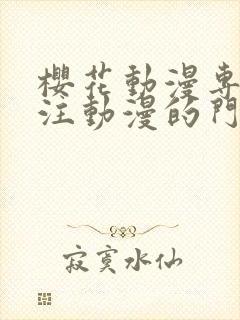 櫻花動漫專
注動漫的門
寂寞水仙